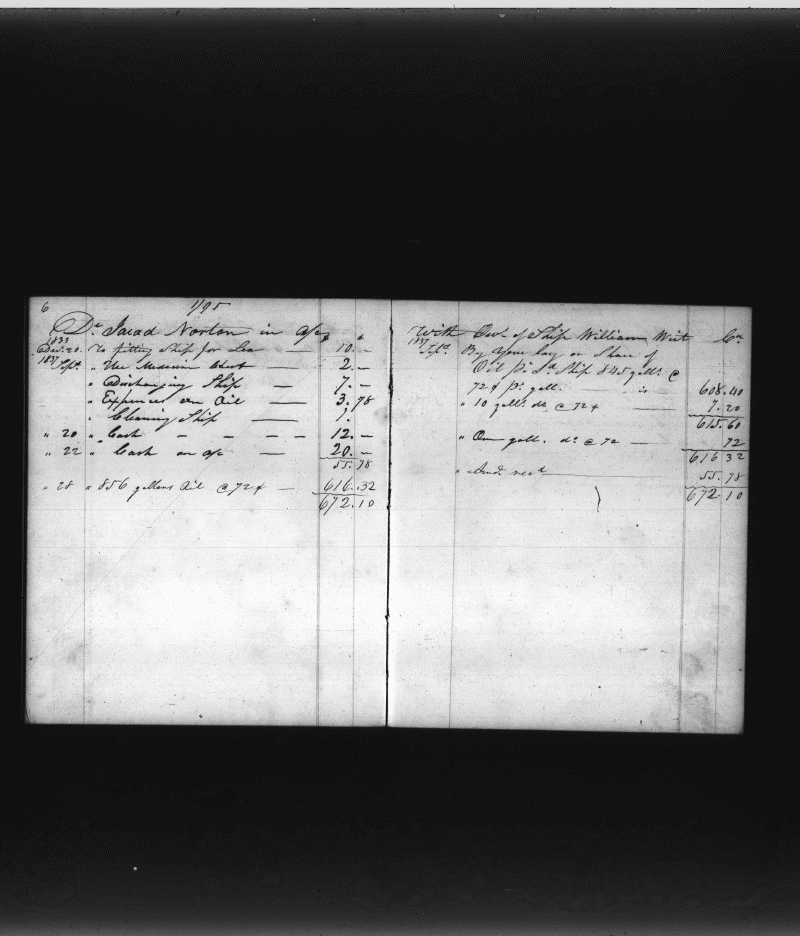 6
1/95
Dr Jarad Norton in a/c
1833
Decr. 20. To fitting Ship for Sea — 10. –
1837 Sept. " Use Medicine Chest — 2. –
" Discharging Ship — 7. –
" Expenses on Oil — 3. 78
" Cleaning Ship — 1.
" 20 " Cash – – – – 12. –
" 22 " Cash on a/c — 20. –
55. 78
" 28 " 856 gallons Oil @ 72¢ — 616. 32
672. 10
With Ownrs of Ship William Wirt Cr
1837
Sept. By Your lay or Share of
Oil pr. Sd Ship 845 galls. @
72¢ pr. gall. " 608. 40
" 10 galls. do. @ 72¢ — 7. 20
615. 60
" One gall. do. @ 72 — 72
616 32
" recd — 55. 78
672. 10